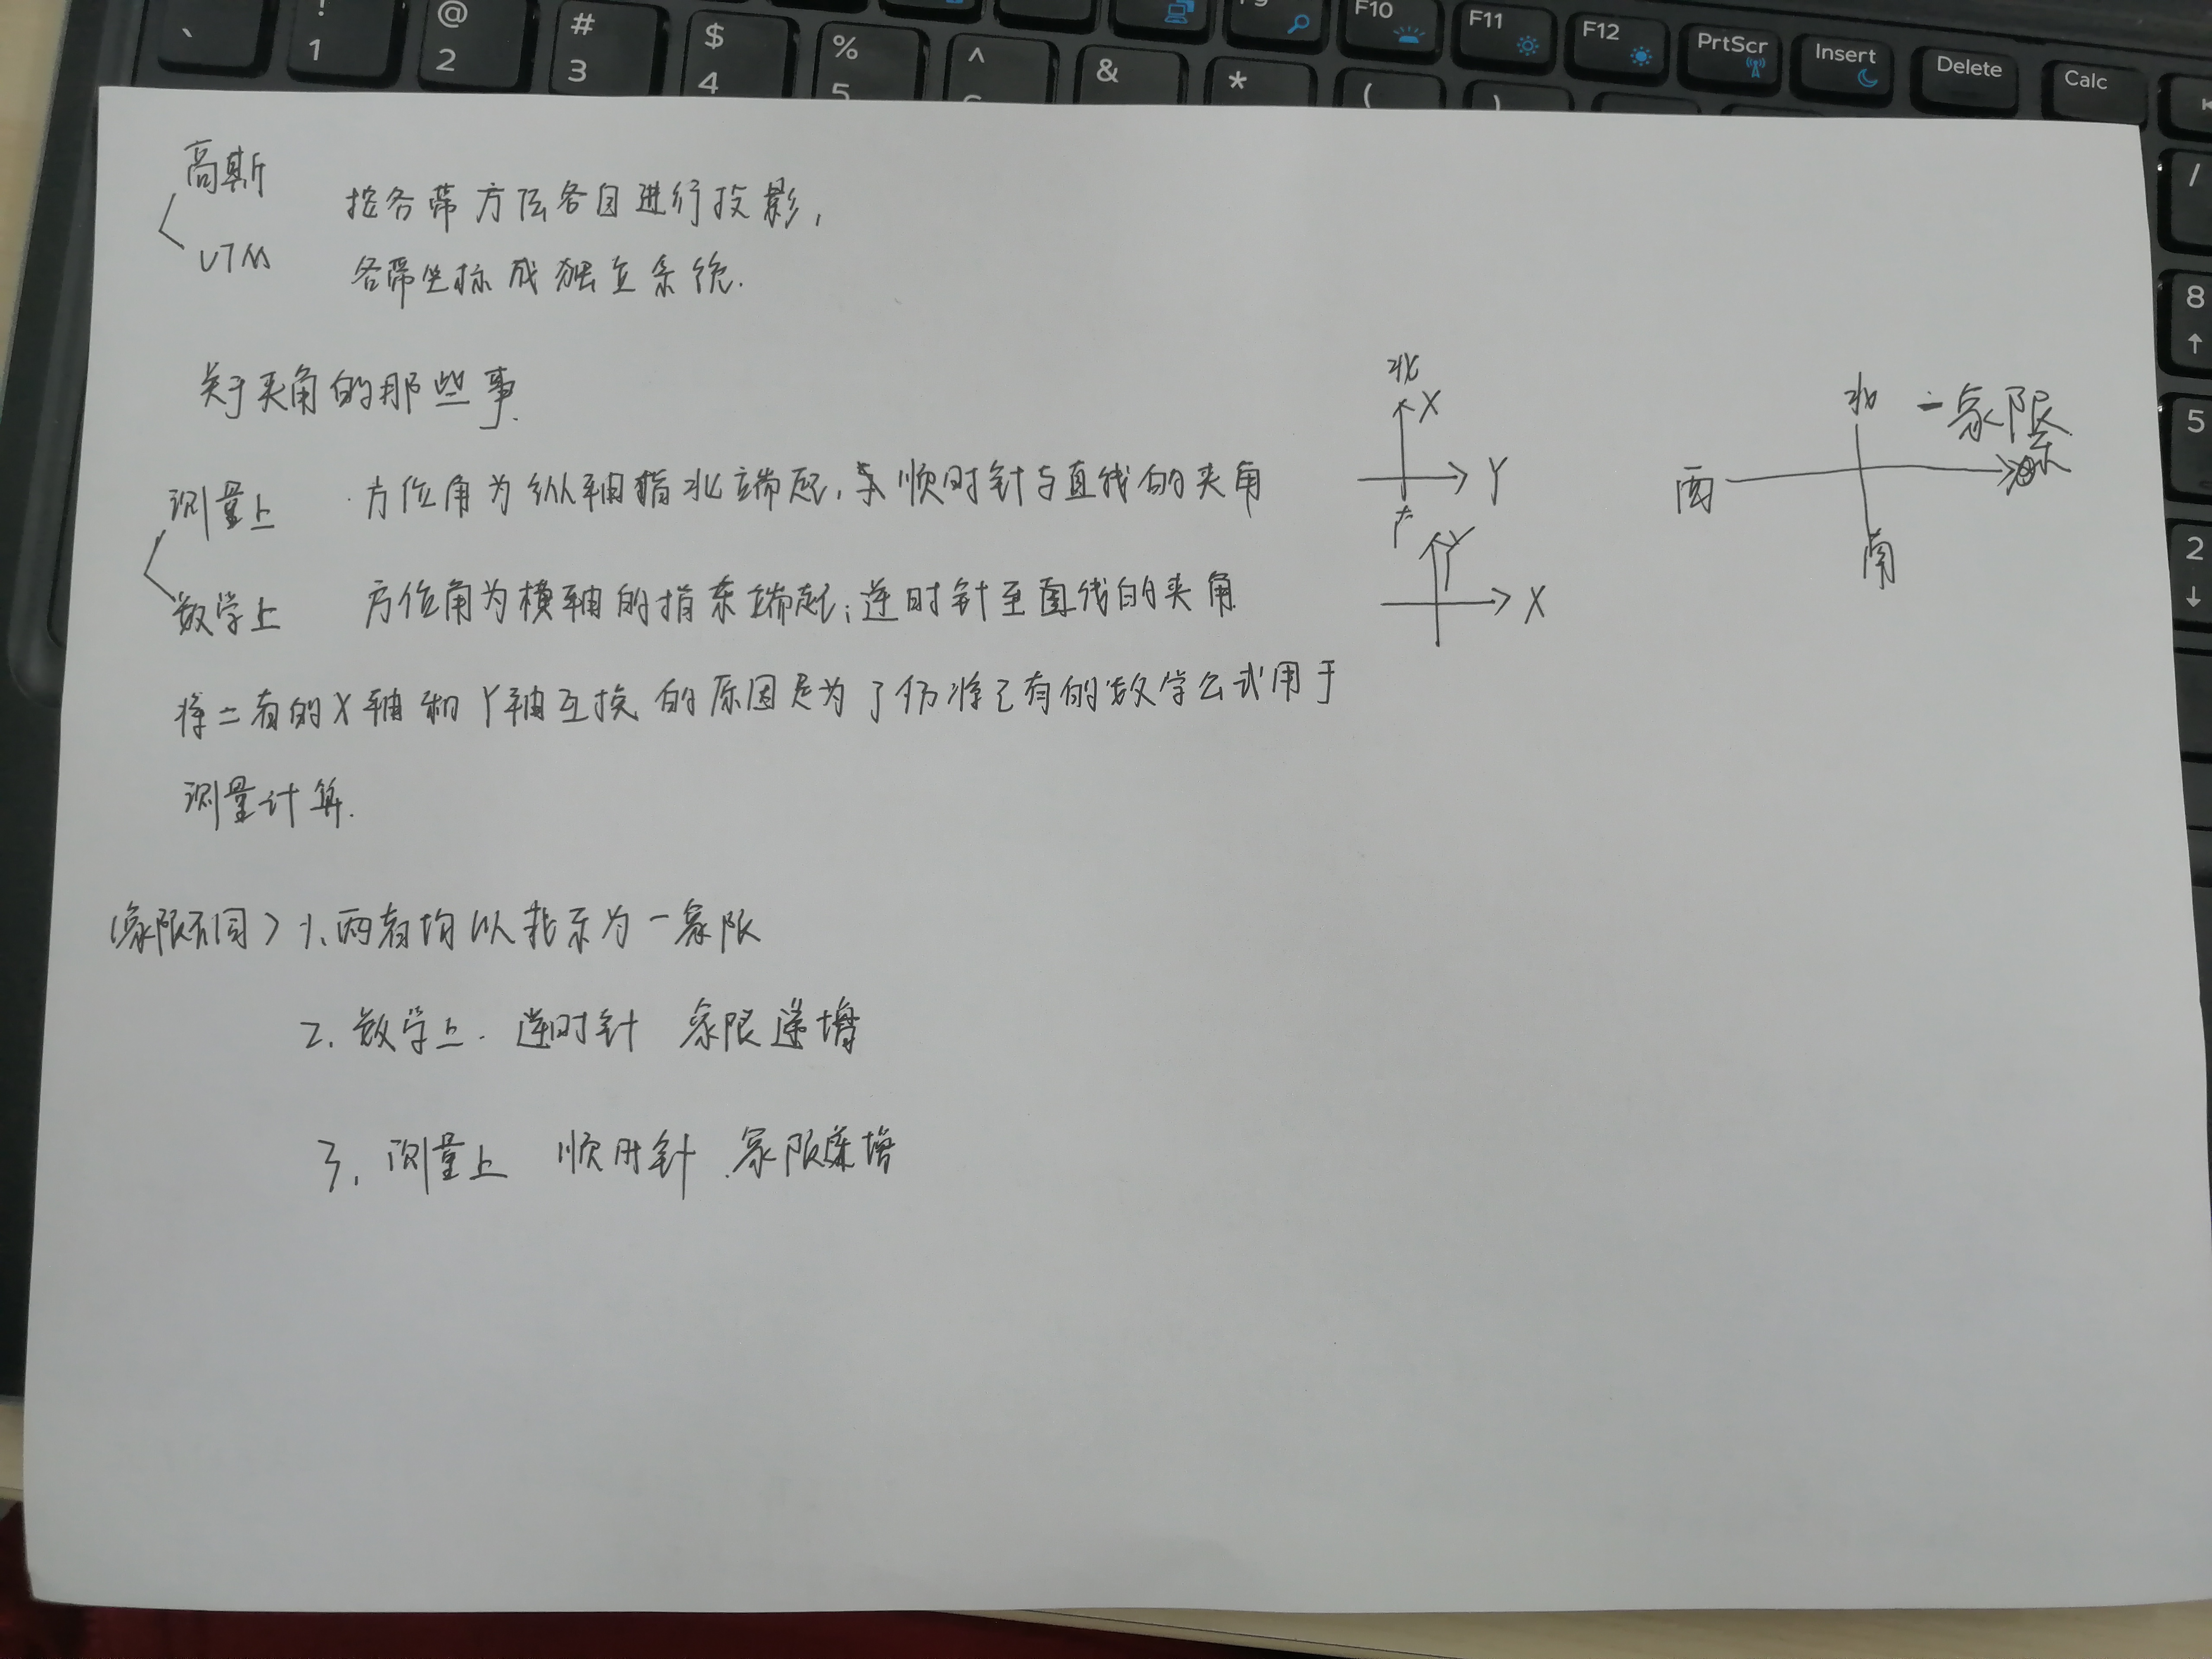 ` ! 1 @ 2 # 3 $ 4 % 5 ^ & * ( ) F10 F11 F12 PrtScr Insert Delete Calc
/
8
↑
5
2
↓
高斯
UTM
按各带方法各自进行投影,
各带坐标成独立系统.
关于夹角的那些事.
测量上 方位角为纵轴指北端起, 顺时针与直线的夹角
数学上 方位角为横轴的指东端起;逆时针至直线的夹角
将二者的X轴和Y轴互换的原因是为了仍将已有的数学公式用于
测量计算.
(象限不同) 1.两者均以北东为一象限
2.数学上.逆时针 象限递增
3.测量上 顺时针.象限递增
北
X
Y
Y
X
北 一象限
西 东
南